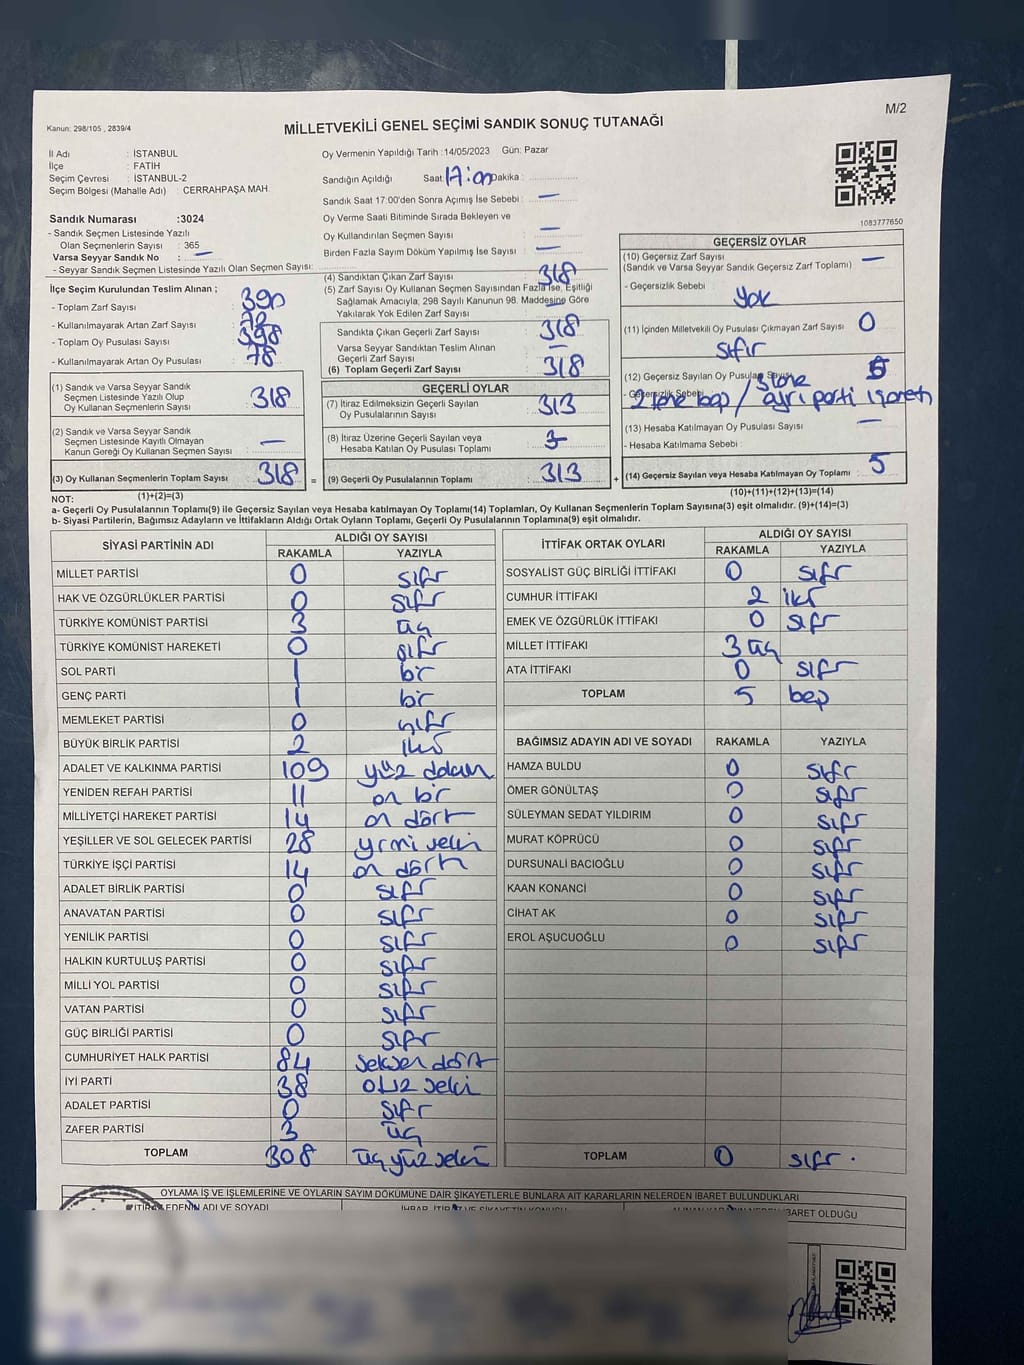 M/2
Kanun: 298/105 , 2839/4
MİLLETVEKİLİ GENEL SEÇİMİ SANDIK SONUÇ TUTANAĞI
İl Adı : İSTANBUL
İlçe : FATİH
Seçim Çevresi : İSTANBUL-2
Seçim Bölgesi (Mahalle Adı) : CERRAHPAŞA MAH.
Sandık Numarası :3024
- Sandık Seçmen Listesinde Yazılı
Olan Seçmenlerin Sayısı : 365
Varsa Seyyar Sandık No : —
- Seyyar Sandık Seçmen Listesinde Yazılı Olan Seçmen Sayısı:
Oy Vermenin Yapıldığı Tarih :14/05/2023 Gün: Pazar
Sandığın Açıldığı Saat 17:00 Dakika :
Sandık Saat 17.00'den Sonra Açımış İse Sebebi : —
Oy Verme Saati Bitiminde Sırada Bekleyen ve
Oy Kullandırılan Seçmen Sayısı : —
Birden Fazla Sayım Döküm Yapılmış İse Sayısı : —
1083777650
İlçe Seçim Kurulundan Teslim Alınan ;
- Toplam Zarf Sayısı : 390
- Kullanılmayarak Artan Zarf Sayısı : 72
- Toplam Oy Pusulası Sayısı : 398
- Kullanılmayarak Artan Oy Pusulası : 78
(1) Sandık ve Varsa Seyyar Sandık
Seçmen Listesinde Yazılı Olup
Oy Kullanan Seçmenlerin Sayısı : 318
(2) Sandık ve Varsa Seyyar Sandık
Seçmen Listesinde Kayıtlı Olmayan
Kanun Gereği Oy Kullanan Seçmen Sayısı : —
(3) Oy Kullanan Seçmenlerin Toplam Sayısı : 318
(1)+(2)=(3)
(4) Sandıktan Çıkan Zarf Sayısı : 318
(5) Zarf Sayısı Oy Kullanan Seçmen Sayısından Fazla İse, Eşitliği
Sağlamak Amacıyla, 298 Sayılı Kanunun 98. Maddesine Göre
Yakılarak Yok Edilen Zarf Sayısı : —
Sandıkta Çıkan Geçerli Zarf Sayısı : 318
Varsa Seyyar Sandıktan Teslim Alınan
Geçerli Zarf Sayısı : —
(6) Toplam Geçerli Zarf Sayısı : 318
GEÇERLİ OYLAR
(7) İtiraz Edilmeksizin Geçerli Sayılan
Oy Pusulalarının Sayısı : 313
(8) İtiraz Üzerine Geçerli Sayılan veya
Hesaba Katılan Oy Pusulası Toplamı :
= (9) Geçerli Oy Pusulalarının Toplamı : 313 +
GEÇERSİZ OYLAR
(10) Geçersiz Zarf Sayısı
(Sandık ve Varsa Seyyar Sandık Geçersiz Zarf Toplamı) : —
- Geçersizlik Sebebi : yok
(11) İçinden Milletvekili Oy Pusulası Çıkmayan Zarf Sayısı : 0
sıfır
(12) Geçersiz Sayılan Oy Pusulası Sayısı : 5
- Geçersizlik Sebebi : 2 tane boş / 3 tane ayrı parti işareti
(13) Hesaba Katılmayan Oy Pusulası Sayısı : —
- Hesaba Katılmama Sebebi :
(14) Geçersiz Sayılan veya Hesaba Katılmayan Oy Toplamı : 5
(10)+(11)+(12)+(13)=(14)
NOT:
a- Geçerli Oy Pusulalarının Toplamı(9) ile Geçersiz Sayılan veya Hesaba Katılmayan Oy Toplamı(14) Toplamları, Oy Kullanan Seçmenlerin Toplam Sayısına(3) eşit olmalıdır. (9)+(14)=(3)
b- Siyasi Partilerin, Bağımsız Adayların ve İttifakların Aldığı Ortak Oyların Toplamı, Geçerli Oy Pusulalarının Toplamına(9) eşit olmalıdır.
SİYASİ PARTİNİN ADI ALDIĞI OY SAYISI
RAKAMLA YAZIYLA
MİLLET PARTİSİ 0 sıfır
HAK VE ÖZGÜRLÜKLER PARTİSİ 0 sıfır
TÜRKİYE KOMÜNİST PARTİSİ 3 üç
TÜRKİYE KOMÜNİST HAREKETİ 0 sıfır
SOL PARTİ 1 bir
GENÇ PARTİ 1 bir
MEMLEKET PARTİSİ 0 sıfır
BÜYÜK BİRLİK PARTİSİ 2 iki
ADALET VE KALKINMA PARTİSİ 109 yüz dokuz
YENİDEN REFAH PARTİSİ 11 on bir
MİLLİYETÇİ HAREKET PARTİSİ 14 on dört
YEŞİLLER VE SOL GELECEK PARTİSİ 28 yirmi sekiz
TÜRKİYE İŞÇİ PARTİSİ 14 on dört
ADALET BİRLİK PARTİSİ 0 sıfır
ANAVATAN PARTİSİ 0 sıfır
YENİLİK PARTİSİ 0 sıfır
HALKIN KURTULUŞ PARTİSİ 0 sıfır
MİLLİ YOL PARTİSİ 0 sıfır
VATAN PARTİSİ 0 sıfır
GÜÇ BİRLİĞİ PARTİSİ 0 sıfır
CUMHURİYET HALK PARTİSİ 84 seksen dört
İYİ PARTİ 38 otuz sekiz
ADALET PARTİSİ 0 sıfır
ZAFER PARTİSİ 3 üç
TOPLAM 308 üç yüz sekiz
İTTİFAK ORTAK OYLARI ALDIĞI OY SAYISI
RAKAMLA YAZIYLA
SOSYALİST GÜÇ BİRLİĞİ İTTİFAKI 0 sıfır
CUMHUR İTTİFAKI 2 iki
EMEK VE ÖZGÜRLÜK İTTİFAKI 0 sıfır
MİLLET İTTİFAKI 3 üç
ATA İTTİFAKI 0 sıfır
TOPLAM 5 beş
BAĞIMSIZ ADAYIN ADI VE SOYADI RAKAMLA YAZIYLA
HAMZA BULDU 0 sıfır
ÖMER GÖNÜLTAŞ 0 sıfır
SÜLEYMAN SEDAT YILDIRIM 0 sıfır
MURAT KÖPRÜCÜ 0 sıfır
DURSUNALİ BACIOĞLU 0 sıfır
KAAN KONANCİ 0 sıfır
CİHAT AK 0 sıfır
EROL AŞUCUOĞLU 0 sıfır
TOPLAM 0 sıfır.
OYLAMA İŞ VE İŞLEMLERİNE VE OYLARIN SAYIM DÖKÜMÜNE DAİR ŞİKAYETLERLE BUNLARA AİT KARARLARIN NELERDEN İBARET BULUNDUKLARI
İTİRAZ EDENİN ADI VE SOYADI
İBARET OLDUĞU